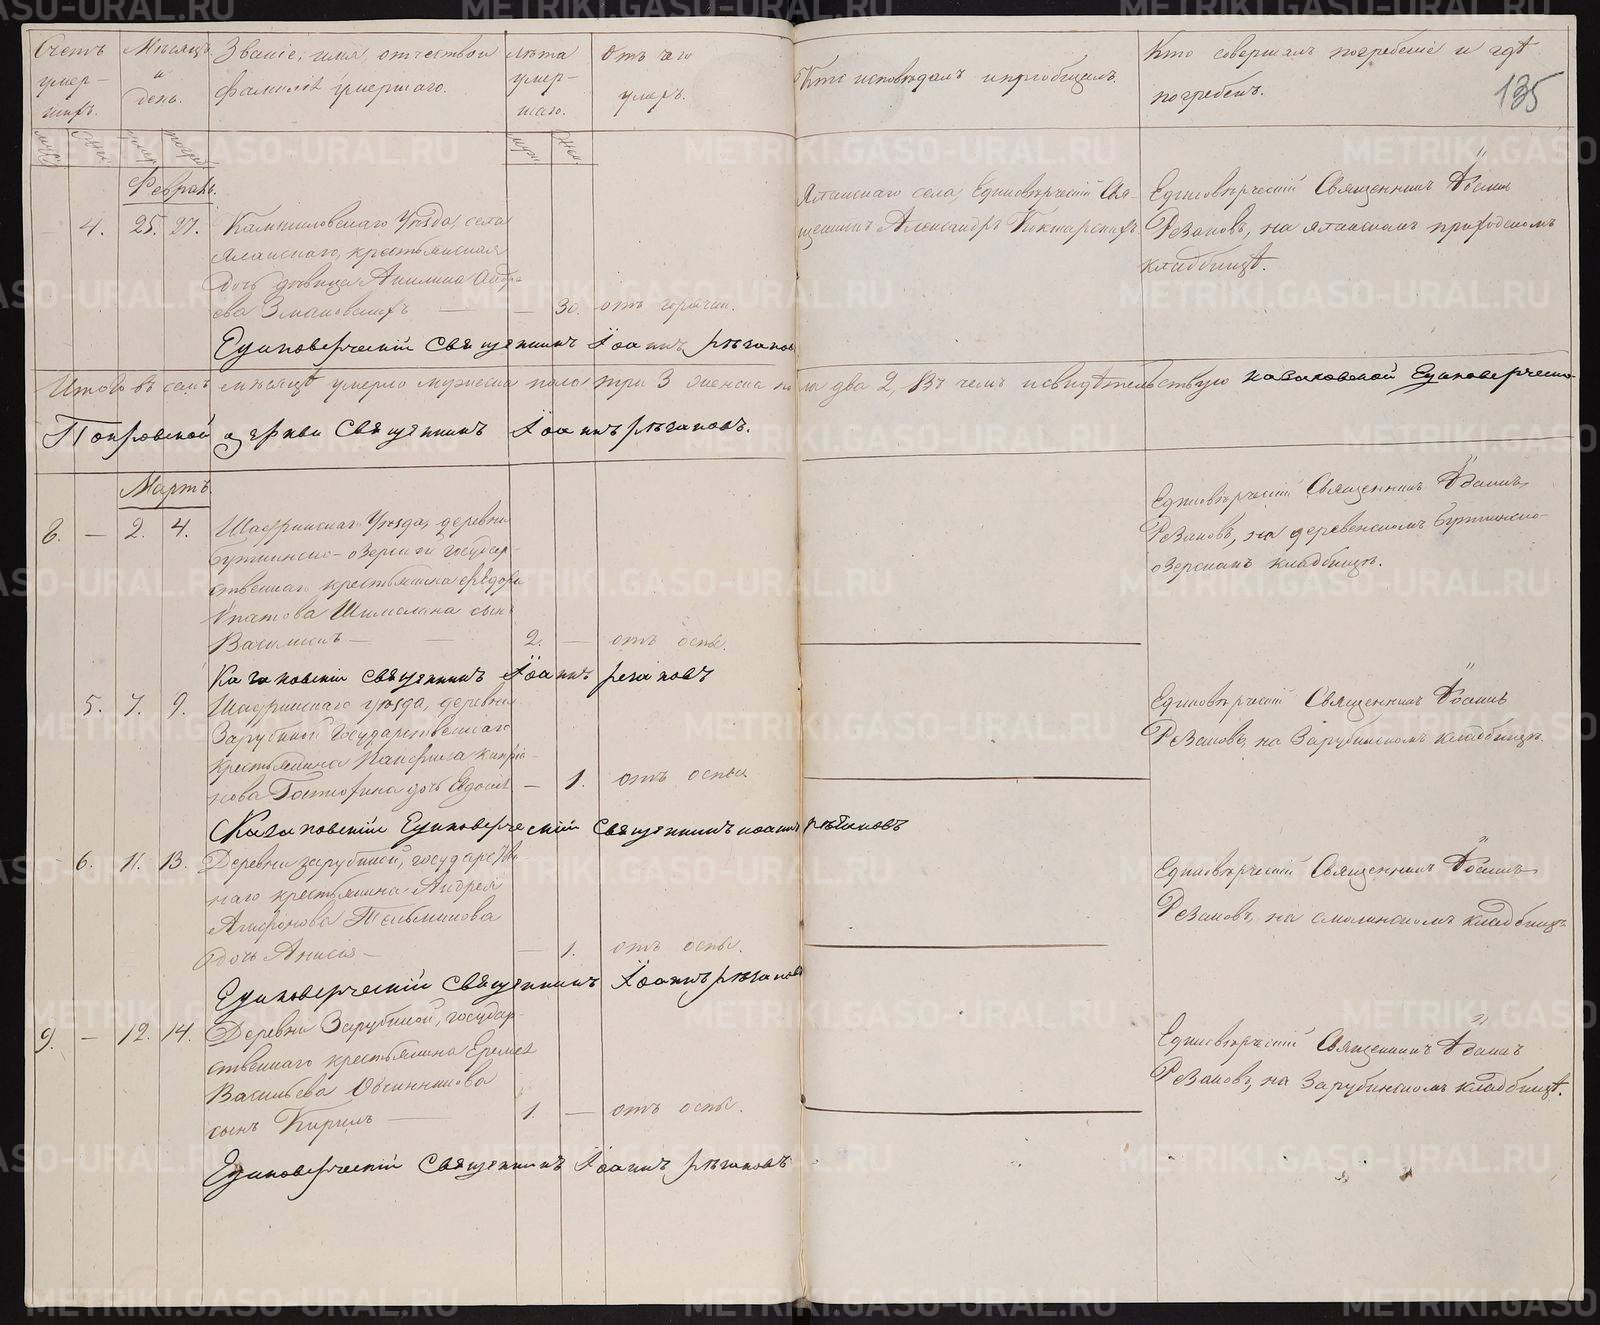 Счетъ умер- шихъ.
Мѣсяцъ и день.
Званіе, имя, отчество и
фамилія умершаго.
Лѣта умер- шаго.
Отъ чего умеръ.
Кто исповѣдалъ и пріобщалъ.
Кто совершалъ погребеніе и гдѣ
погребенъ.
135
Февраль.
4. 25. 27. Камышловскаго Уѣзда, села
крестьянская
дочь дѣвица
30. отъ горячки.
села, Единовѣрческій Свя-
щенникъ Александръ
Единовѣрческій Священникъ Іоаннъ
Резановъ, на приходскомъ
кладбищѣ.
Единоверческій Священникъ Іоаннъ Рѣзановъ
Итого въ семъ мѣсяцѣ умерло мужеска пола три 3 женска пола два 2, въ чемъ и свидѣтельствую Единоверческо-
Покровской церкви Священникъ Іоаннъ Рѣзановъ.
Мартъ.
8. — 2. 4. Шадринскаго Уѣзда, деревни
озерной государ-
ственнаго крестьянина Ѳедора
сынъ
2. — отъ оспы.
Единовѣрческій Священникъ Іоаннъ
Резановъ, на деревенскомъ
озерскомъ кладбищѣ.
священникъ Іоаннъ Резановъ
5. 7. 9. Шадринскаго уѣзда, деревни
Зарубиной Государственнаго
крестьянина
дочь
— 1. отъ оспы
Единовѣрческій Священникъ Іоаннъ
Резановъ, на Зарубинскомъ кладбищѣ.
Единоверческій священникъ Іоаннъ Рѣзановъ
6. 11. 13. Деревни Зарубиной, государстве-
наго крестьянина Андрея
Агафонова
дочь Анисія —
— 1. отъ оспы.
Единовѣрческій Священникъ Іоаннъ
Резановъ, на смолинскомъ кладбищѣ
Единоверческій Священникъ Іоаннъ Рѣзановъ
9. — 12. 14. Деревни Зарубиной, государ-
ственнаго крестьянина Еремея
Васильева Овчинникова
сынъ Кирилъ
1. — отъ оспы.
Единовѣрческій Священникъ Іоаннъ
Резановъ, на Зарубинскомъ кладбищѣ.
Единоверческій Священникъ Іоаннъ Рѣзановъ
METRIKI.GASO-URAL.RU